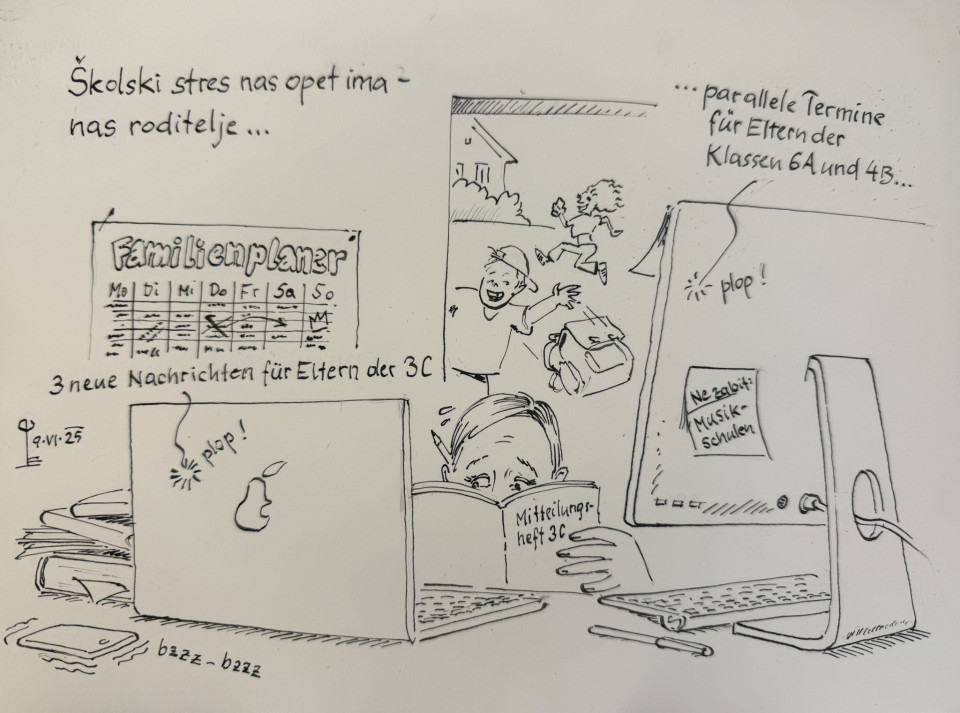 Školski stres nas opet ima -
nas roditelje...
...parallele Termine
für Eltern der
Klassen 6A und 4B...
Familienplaner
Mo Di Mi Do Fr Sa So
plop!
3 neue Nachrichten für Eltern der 3C
9·VI·25
plop!
Ne zabit:
Musik-
schulen
Mitteilungs-
heft 3C
bzzz-bzzz